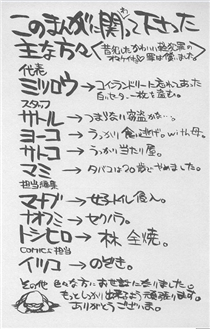 このまんがに関って下さった
主な方々
代表
ミツロウ→コインランドリーに忘れてあった
白いセーター一枚を盗む。
スタッフ
サトル→つまらない窃盗かな…。
ヨーコ→うっかり食い逃げ。with母。
サトコ→うっかり当たり屋。
マミ→タバコは20歳でやめました。
担当編集
マナブ→女子トイレ侵入。
ナオフミ→セクハラ。
トシヒロ→株全焼。
COMICS担当
イツコ→のぞき。
その他色々な方にお世話になりました。
もっとしっかり出来るよう頑張ります。
ありがとうございました。